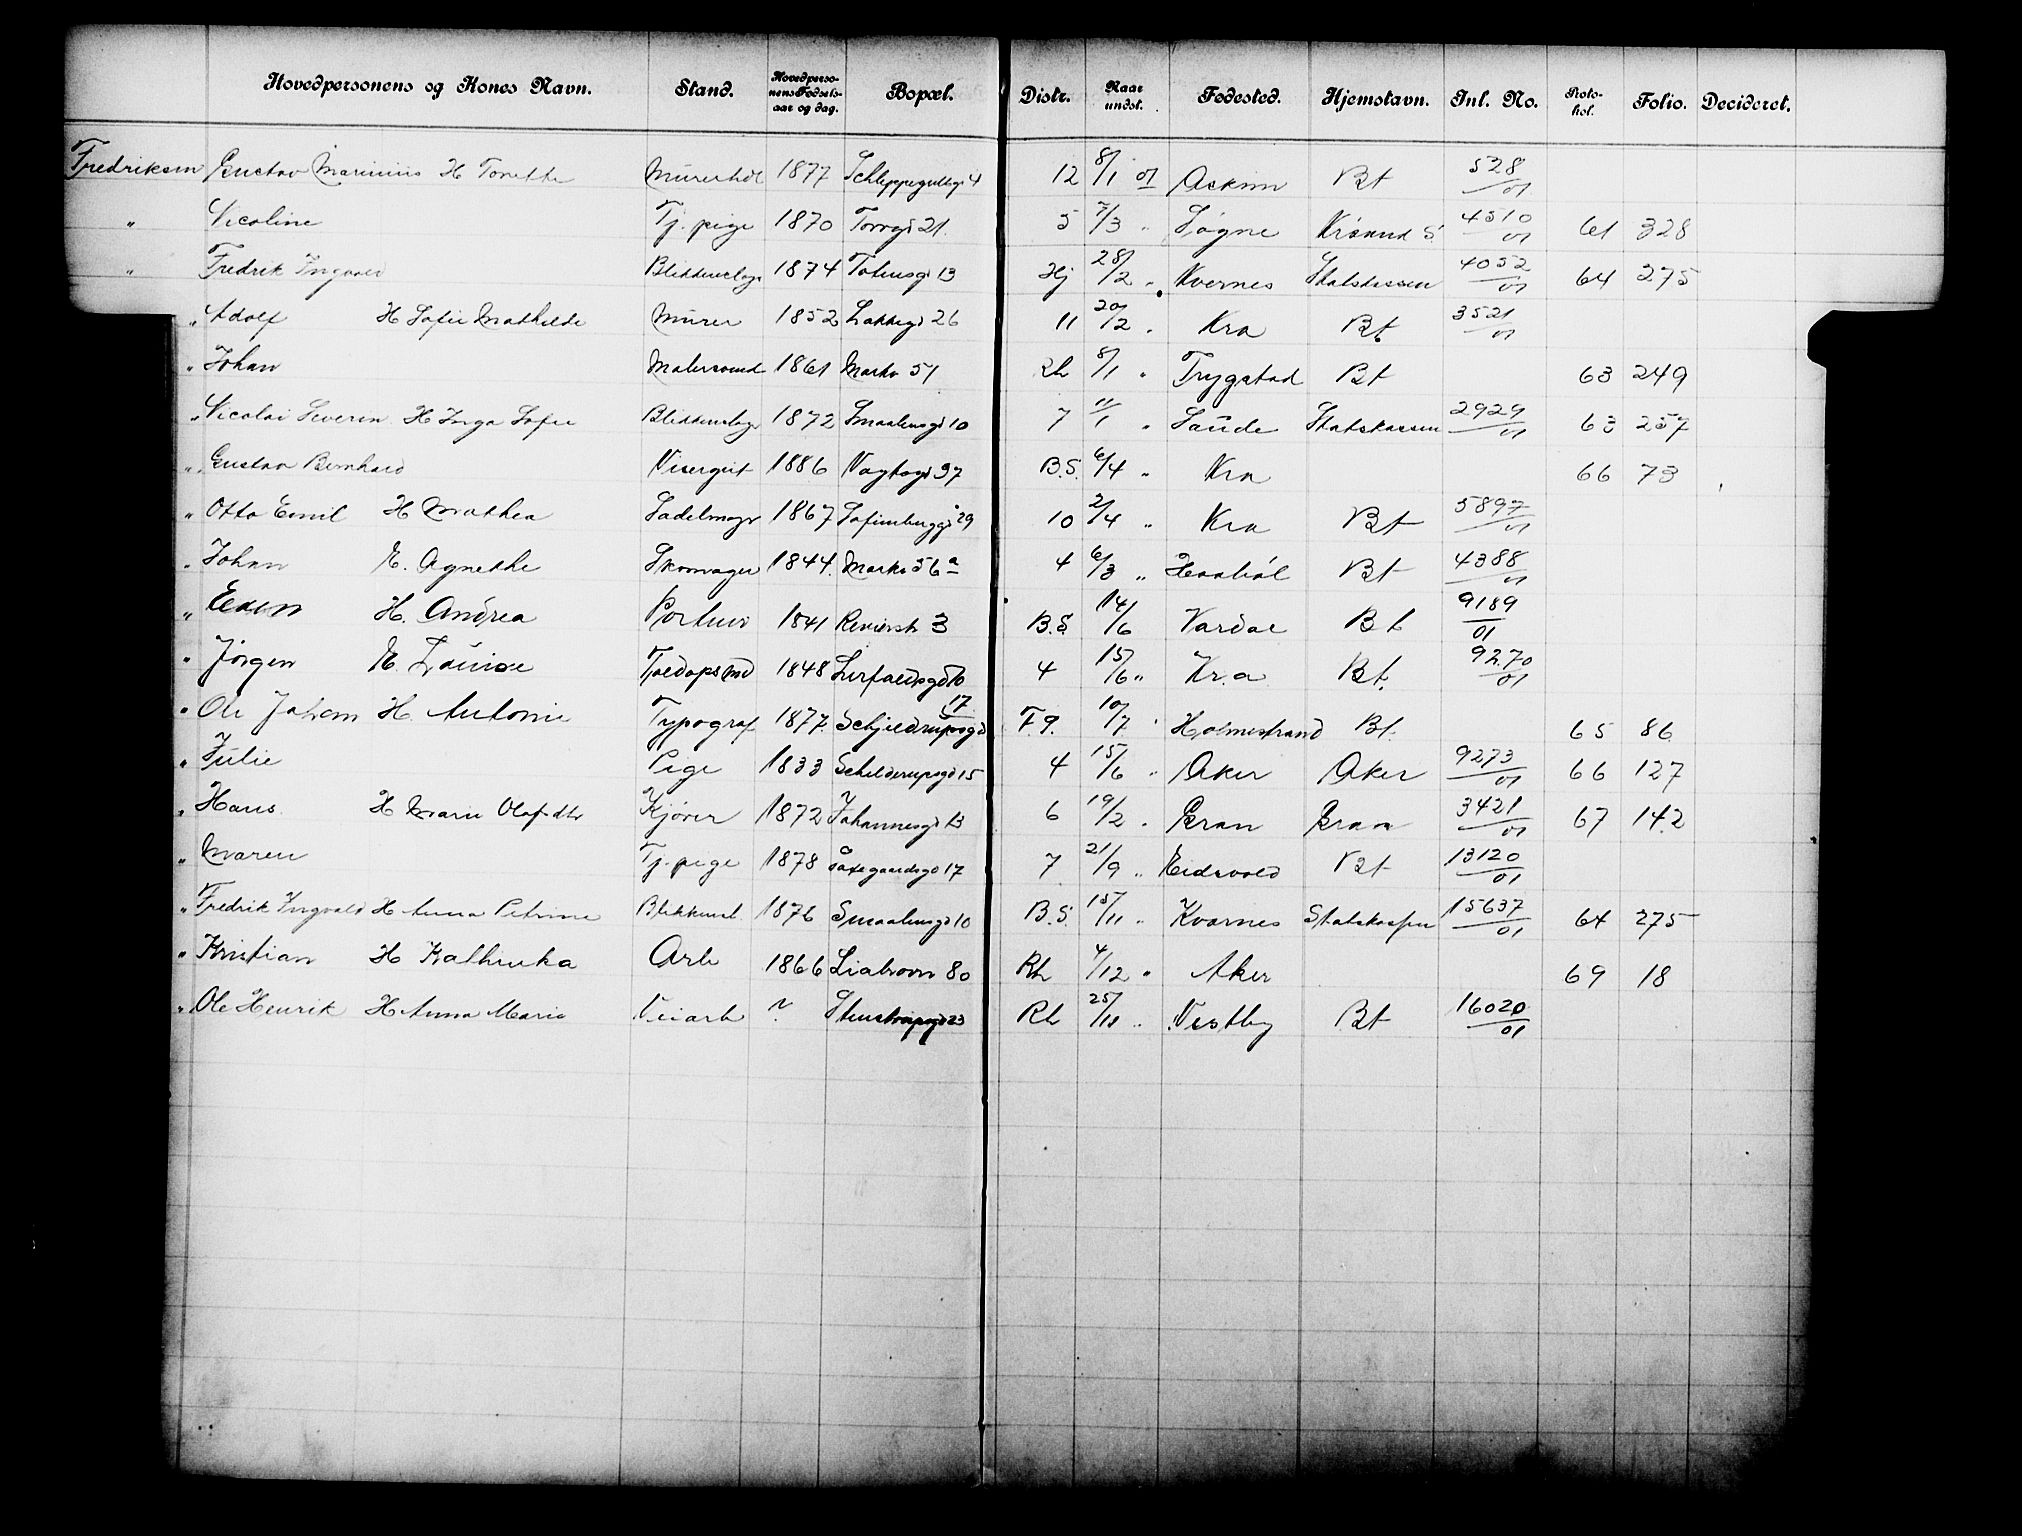 Hovedpersonens og Kones Navn. Stand. Hovedpersonens Fødselsaar og dag. Bopæl. Distr. Naar undst. Fødested. Hjemstavn. Inl. No. Protokol. Folio. Decideret.
Fredriksen Gustav Marinius H Torette Murerhdl 1877 Schleppegrellsg 4 12 8/1 01 Askim Bt 528/01
" Nicoline Tj. pige 1870 Torvg 21 5 7/3 " Søgne Krsund S. 4510/01 61 328
" Fredrik Ingvald Blikkenslag 1874 Totensg 13 Hj 28/2 " Kvernes Statskassen 4052/01 64 275
" Adolf H Sofie Mathilde Murer 1852 Lakkeg 26 11 20/2 " Kra Bt 3521/01
" Johan Malersvend 1861 Markv 51 Rh 8/1 " Trygstad Bt 63 249
" Nicolai Severin H Inga Sofie Blikkenslag 1872 Smaalensg 10 7 11/1 " Saude Statskassen 2929/01 63 257
" Gustav Bernhard Visergut 1886 Vogtsg 37 B.S. 6/4 " Kra 66 73
" Otto Emil H Mathea Sadelmager 1867 Sofienbergg 29 10 2/4 " Kra Bt 5897/01
" Johan E. Agnethe Skomager 1844. Markv 56 a 4 6/3 " Haabøl Bt 4388/01
" Even H. Andrea Portner 1841 Revierst 3 B.S. 14/6 Vardal Bt 9189/01
" Jørgen E. Louise 1848 4 15/6 " Kr.a. Bt. 9270/01
" Ole Johan H. Antonie Typograf 1877. Schjeldrupsgd 17 F.9. 10/7 " Holmestrand Bt. 65 86
" Julie Pige 1833 Schelderupsgd 15 4 15/6 " Aker Aker 9273/01 66 127
" Hans. H Marie Olafdtr Kjører 1872 Johannesgd 13 6 19/2 " Gran Gran 3421/01 67 142
" Maren Tj. pige 1878 Aasegaardsgd 17 7 21/9 " Eidsvold Bt 13120/01
" Fredrik Ingvald H Anna Petrine Blikkensl. 1876 Smaalensgd 10 B.S. 15/11 " Kvarnes Statskassen 15637/01 64 275
" Kristian H Kathinka Arb 1866 Liabrovn 80 Rh 4/12 " Aker 69 18
" Ole Henrik H Anna Marie Veiarb ? Stenstrupsgd 23 Rh 25/11 " Vestby Bt 16020/01